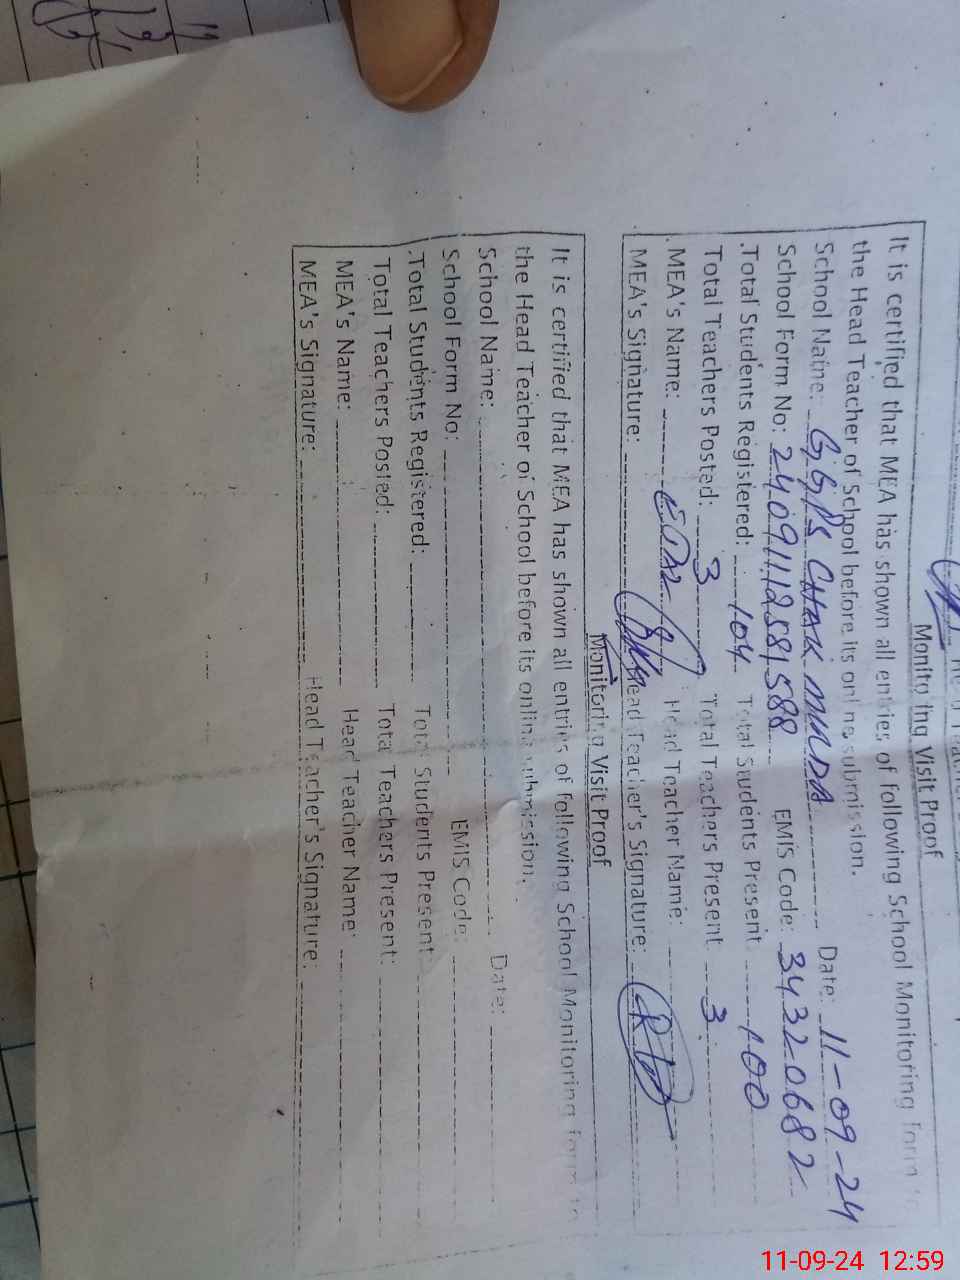 Monitoring Visit Proof
It is certified that MEA has shown all entries of following School Monitoring form to
the Head Teacher of School before its online submission.
School Name: G.G.P.S CHAK MUNDA Date: 11-09-24
School Form No: 2409111258,588 EMIS Code: 34320682
.Total Students Registered: 104 Total Students Present 100
Total Teachers Posted: 3 Total Teachers Present 3
MEA's Name: Head Teacher Name:
MEA's Signature: Head Teacher's Signature:
Monitoring Visit Proof
It is certified that MEA has shown all entries of following School Monitoring form to
the Head Teacher of School before its online submission.
School Name: Date:
School Form No: EMIS Code:
.Total Students Registered: Total Students Present
Total Teachers Posted: Total Teachers Present:
MEA's Name: Head Teacher Name:
MEA's Signature: Head Teacher's Signature:
11-09-24 12:59